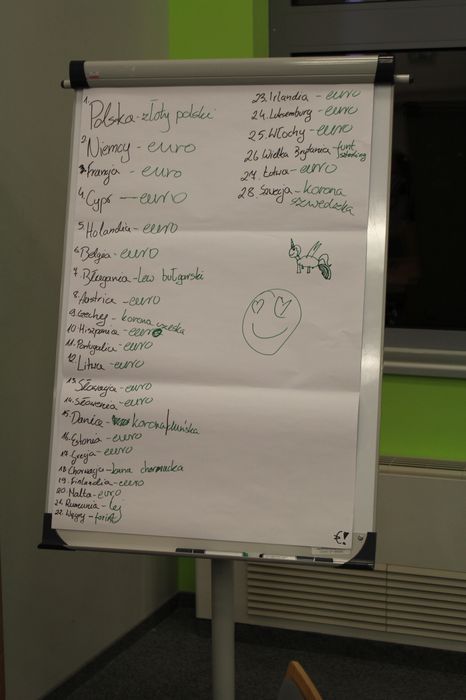 1. Polska - złoty polski
2. Niemcy - euro
3. Francja - euro
4. Cypr - euro
5. Holandia - euro
6. Belgia - euro
7. Bułgaria - lew bułgarski
8. Austria - euro
9. Czechy - korona czeska
10. Hiszpania - euro
11. Portugalia - euro
12. Litwa - euro
13. Słowacja - euro
14. Słowenia - euro
15. Dania - korona duńska
16. Estonia - euro
17. Grecja - euro
18. Chorwacja - kuna chorwacka
19. Finlandia - euro
20. Malta - euro
21. Rumunia - lej
22. Węgry - forint
23. Irlandia - euro
24. Luksemburg - euro
25. Włochy - euro
26. Wielka Brytania - funt
szterling
27. Łotwa - euro
28. Szwecja - korona
szwedzka
€!